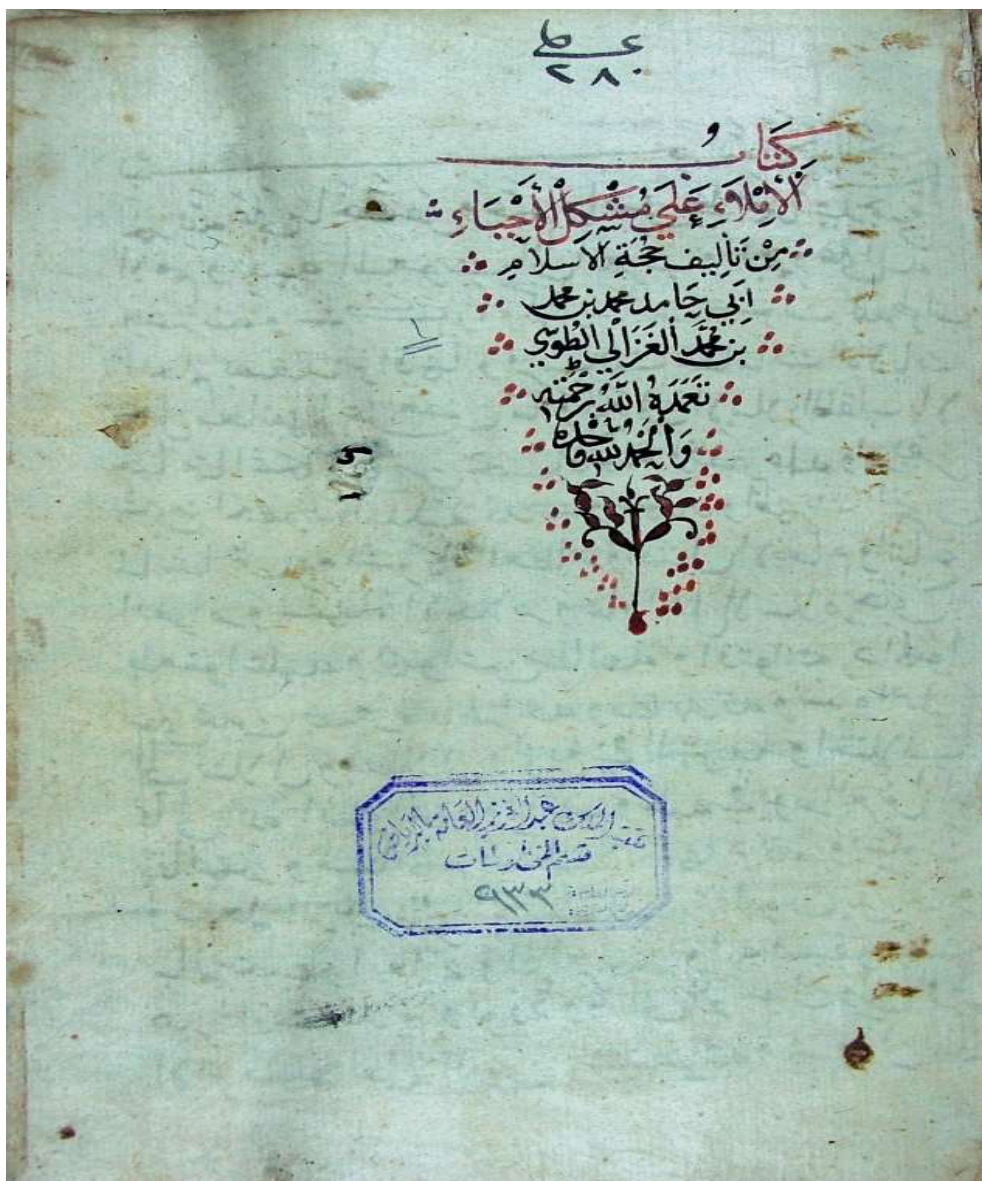 ٢٨٠
كتاب
الْأِمْلَاءِ عَلَي مُشْكِلْ الْأَحْيَاءِ
مِنْ تَأليف حُجَّةِ الاسلام
ابي حَامد محمد بن محمد
بن محمَّد الغَزَالي الطوسي
تغمدَهُ اللهُ برَحْمَتِهِ
وَالْحَمْدُ لله وَحْدَهُ
١
عبد العزيز العَامة بالرياض
قسم المخطوطات
٩٣٣